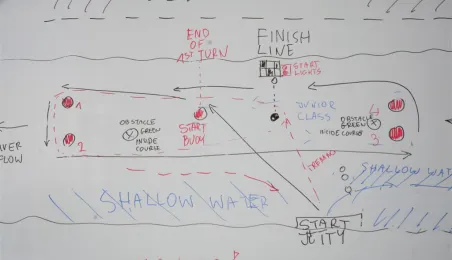 END
OF
1ST TURN
FINISH
LINE
START
LIGHTS
JUNIOR
CLASS
1
4
OBSTACLE
GREEN
INSIDE
COURSE
START
BUOY
OBSTACLE
GREEN
INSIDE COURSE
2
3
FLOW
SHALLOW WATER
SHALLOW WAT
START
JETTY